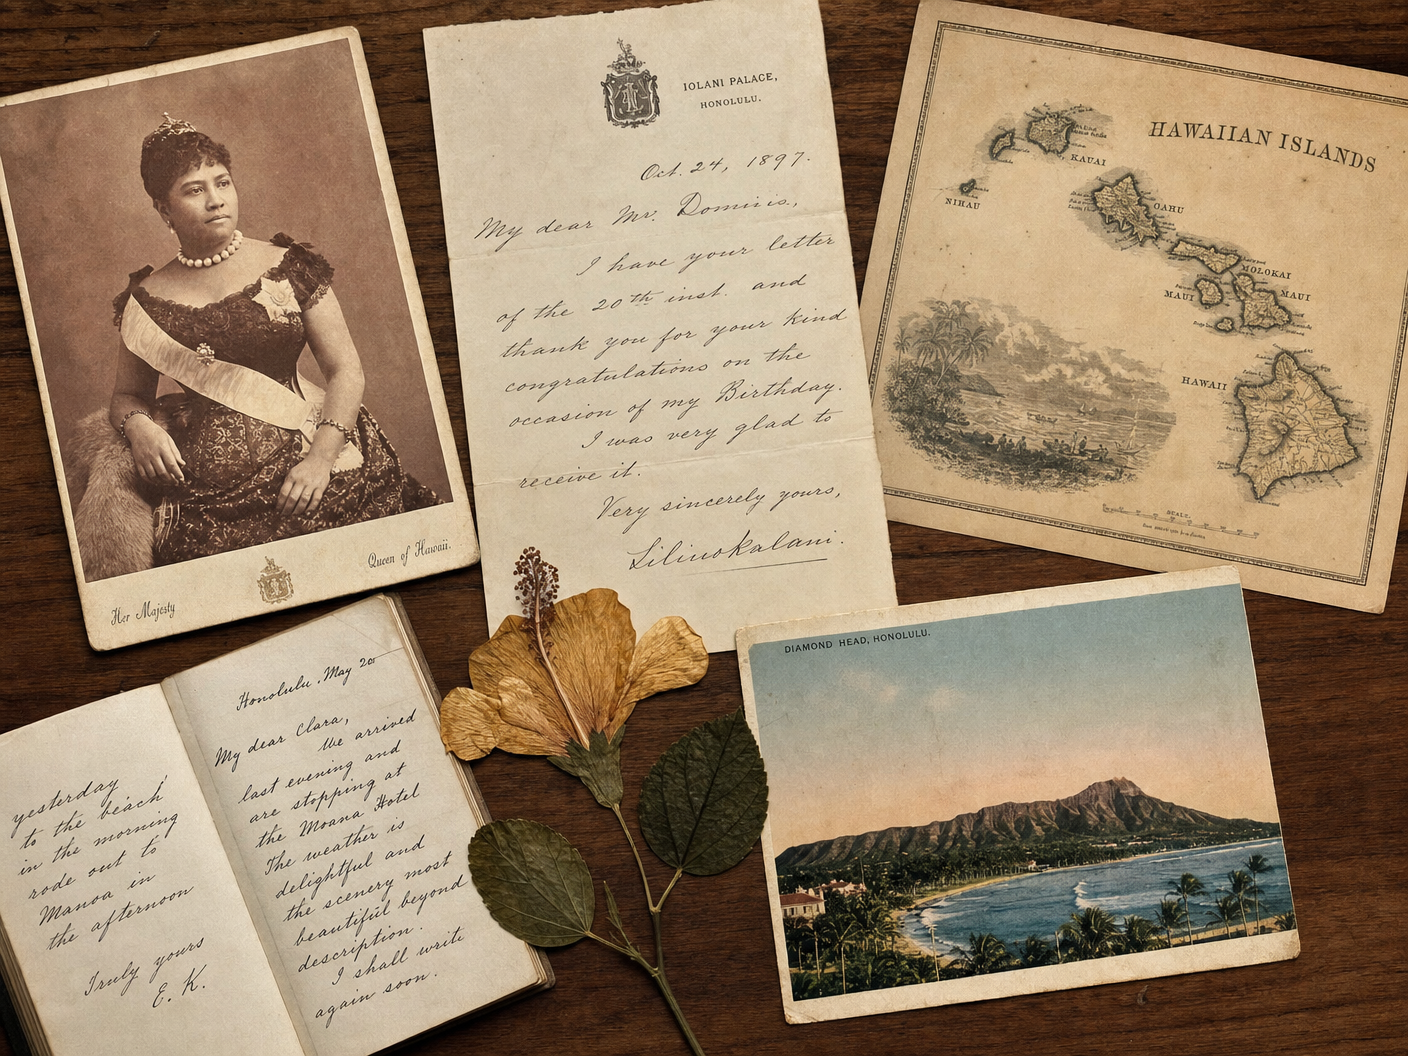 Her Majesty
Queen of Hawaii.
IOLANI PALACE,
HONOLULU.
Oct. 24, 1897.
My dear Mr. Dominis,
I have your letter
of the 20th inst. and
thank you for your kind
congratulations on the
occasion of my Birthday.
I was very glad to
receive it.
Very sincerely yours,
Liliuokalani.
HAWAIIAN ISLANDS
KAUAI
NIHAU
OAHU
MOLOKAI
MAUI
MAUI
HAWAII
SCALE.
yesterday
to the beach
in the morning
rode out to
Manoa in
the afternoon
Truly yours
E. K.
Honolulu, May 20
My dear Clara,
We arrived
last evening and
are stopping at
the Moana Hotel
The weather is
delightful and
the scenery most
beautiful beyond
description.
I shall write
again soon.
DIAMOND HEAD, HONOLULU.